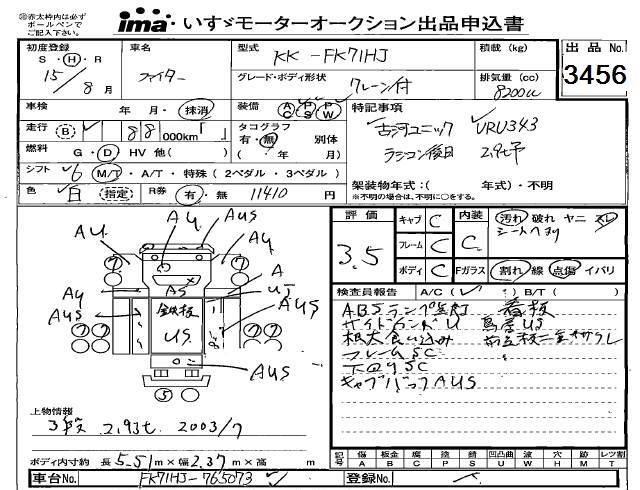 ①赤太枠内は必ず
ボールペンで
ご記入下さい。
ima いすゞモーターオークション出品申込書
初度登録 車名 型式 KK-FK71HJ 積載 (kg) 出品 No.
S・H・R 15年 8月 ファイター グレード・ボディ形状 クレーン付 排気量 (cc) 8200cc 3456
車検 年 月・抹消 装備 AC PS PW 特記事項
走行 (B) 88 000km「 」 タコグラフ 有・無 別体 古河ユニック URU343
燃料 G・D HV 他( ) ( 年 月) ラジコン後日 2.9t
シフト 6 M/T・A/T・特殊 (2ペダル・3ペダル) 架装物年式:( 年式)・不明
色 白 指定 R券 有・無 11410 円 ※不明の場合は、不明に○をする。
評価 3.5 キャブ C 内装 C 汚れ 破れ ヤニ スレ
フレーム C
ボディ C Fガラス 割れ 線 点傷 イバリ
検査員報告 A/C ( ) B/T ( )
AU AUS
AU AU
A
AU AS UJ
AUS 鉄板 AUS
US
AUS
⑦ ⑦
⑦⑦ ⑦⑦
⑤
ABSランプ点灯 看板
サイドガードU 鳥居US
根太食い込み
フレームSC
下回りSC
キャブバックAUS
上物情報
3段 2.93t 2003/7
ボディ内寸約 長 5.51 m×幅 2.37 m×高 m
記号 傷 A 板金 B 腐 C 塗 P 錆 S 凹凸曲 U 波 W 穴 H 欠 K ズミ X レツ割 T
車台No. FK71HJ-765073 登録No.